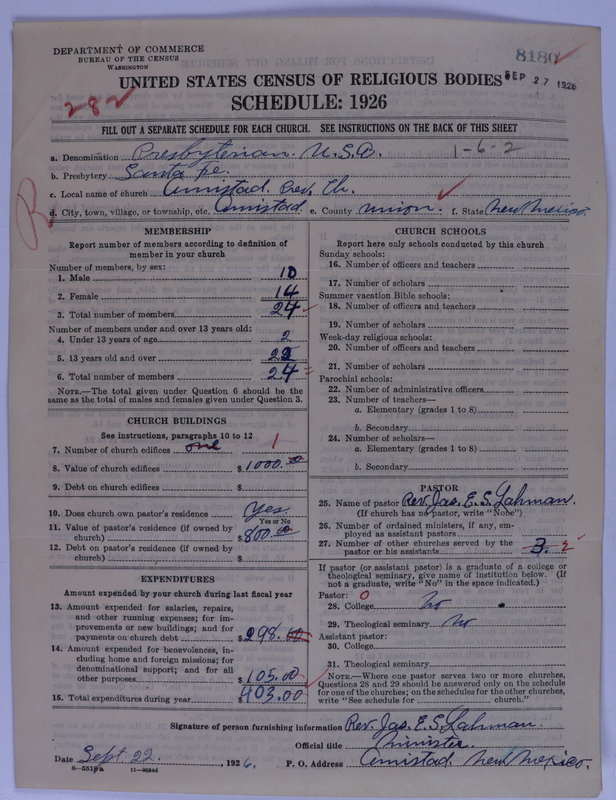 DEPARTMENT OF COMMERCE
BUREAU OF THE CENSUS
WASHINGTON
8180
SEP 27 1926
282
UNITED STATES CENSUS OF RELIGIOUS BODIES
SCHEDULE: 1926
FILL OUT A SEPARATE SCHEDULE FOR EACH CHURCH. SEE INSTRUCTIONS ON THE BACK OF THIS SHEET
a. Denomination Presbyterian. U.S.A. 1-6-2
b. Presbytery Santa Fe.
c. Local name of church Amistad. Pres. Ch.
d. City, town, village, or township, etc. Amistad. e. County Union. f. State New Mexico.
R
MEMBERSHIP
Report number of members according to definition of
member in your church
Number of members, by sex:
1. Male 10
2. Female 14
3. Total number of members 24
Number of members under and over 13 years old:
4. Under 13 years of age 2
5. 13 years old and over 22
6. Total number of members 24
NOTE.—The total given under Question 6 should be the
same as the total of males and females given under Question 3.
CHURCH BUILDINGS
See instructions, paragraphs 10 to 12
7. Number of church edifices one 1
8. Value of church edifices $1000.00
9. Debt on church edifices $
10. Does church own pastor's residence Yes
Yes or No
11. Value of pastor's residence (if owned by
church) $800.00
12. Debt on pastor's residence (if owned by
church) $
EXPENDITURES
Amount expended by your church during last fiscal year
13. Amount expended for salaries, repairs,
and other running expenses; for im-
provements or new buildings; and for
payments on church debt $298.00
14. Amount expended for benevolences, in-
cluding home and foreign missions; for
denominational support; and for all
other purposes $105.00
15. Total expenditures during year $403.00
CHURCH SCHOOLS
Report here only schools conducted by this church
Sunday schools:
16. Number of officers and teachers
17. Number of scholars
Summer vacation Bible schools:
18. Number of officers and teachers
19. Number of scholars
Week-day religious schools:
20. Number of officers and teachers
21. Number of scholars
Parochial schools:
22. Number of administrative officers
23. Number of teachers—
a. Elementary (grades 1 to 8)
b. Secondary
24. Number of scholars—
a. Elementary (grades 1 to 8)
b. Secondary
PASTOR
25. Name of pastor Rev. Jas. E. S. Lahman.
(If church has no pastor, write "None")
26. Number of ordained ministers, if any, em-
ployed as assistant pastors
27. Number of other churches served by the
pastor or his assistants 3. 2
If pastor (or assistant pastor) is a graduate of a college or
theological seminary, give name of institution below. (If
not a graduate, write "No" in the space indicated.)
Pastor: 0
28. College No
29. Theological seminary No
Assistant pastor:
30. College
31. Theological seminary
NOTE.—Where one pastor serves two or more churches,
Questions 28 and 29 should be answered only on the schedule
for one of the churches; on the schedules for the other churches,
write "See schedule for church."
Signature of person furnishing information Rev. Jas. E. S. Lahman.
Official title Minister.
Date Sept. 22. , 1926. P. O. Address Amistad. New Mexico.
8—5519 a